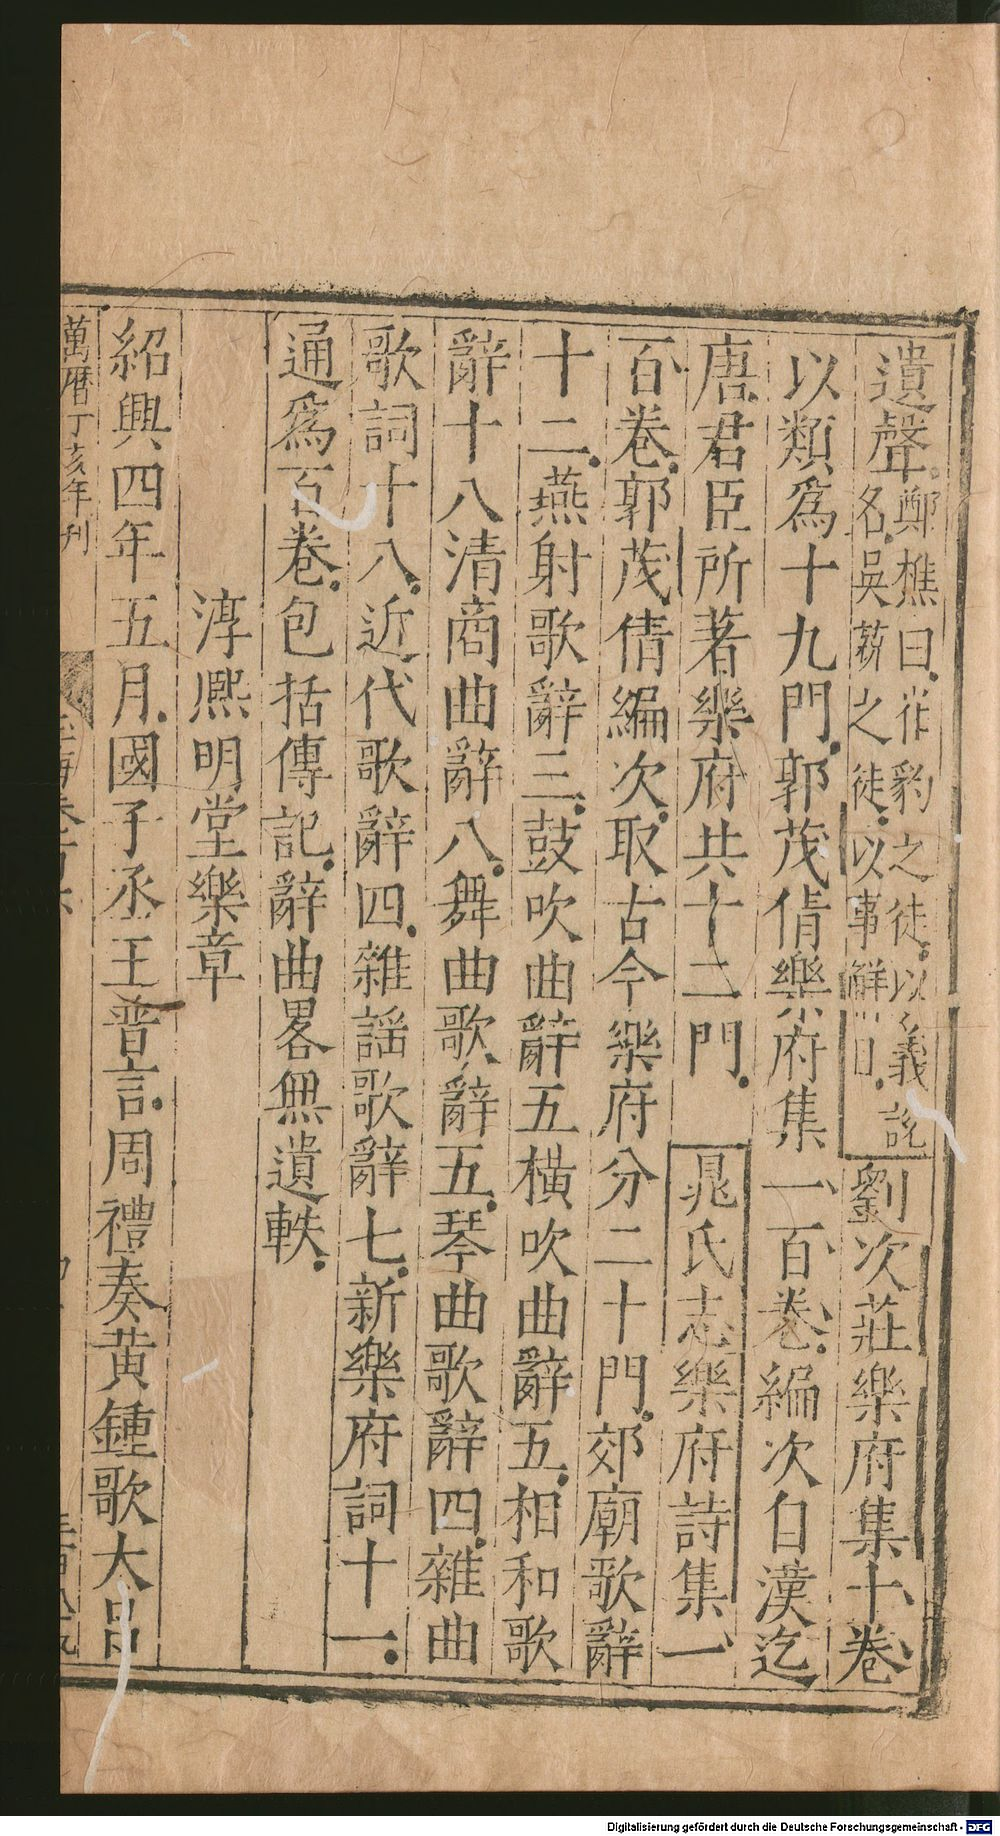 遺聲鄭樵曰崔豹之徒以義說名吳薪之徒以事解目劉次莊樂府集十卷
以類爲十九門郭茂倩樂府集一百卷編次自漢迄
唐君臣所著樂府共十二門晁氏志樂府詩集一
百卷郭茂倩編次取古今樂府分二十門郊廟歌辭
十二燕射歌辭三鼓吹曲辭五橫吹曲辭五相和歌
辭十八清商曲辭八舞曲歌辭五琴曲歌辭四雜曲
歌詞十八近代歌辭四雜謡歌辭七新樂府詞十一
通爲百卷包括傳記辭曲畧無遺軼
淳熈明堂樂章
紹興四年五月國子丞王普言周禮奏黄鍾歌大呂
萬曆丁亥年刊
Digitalisierung gefördert durch die Deutsche Forschungsgemeinschaft - DFG